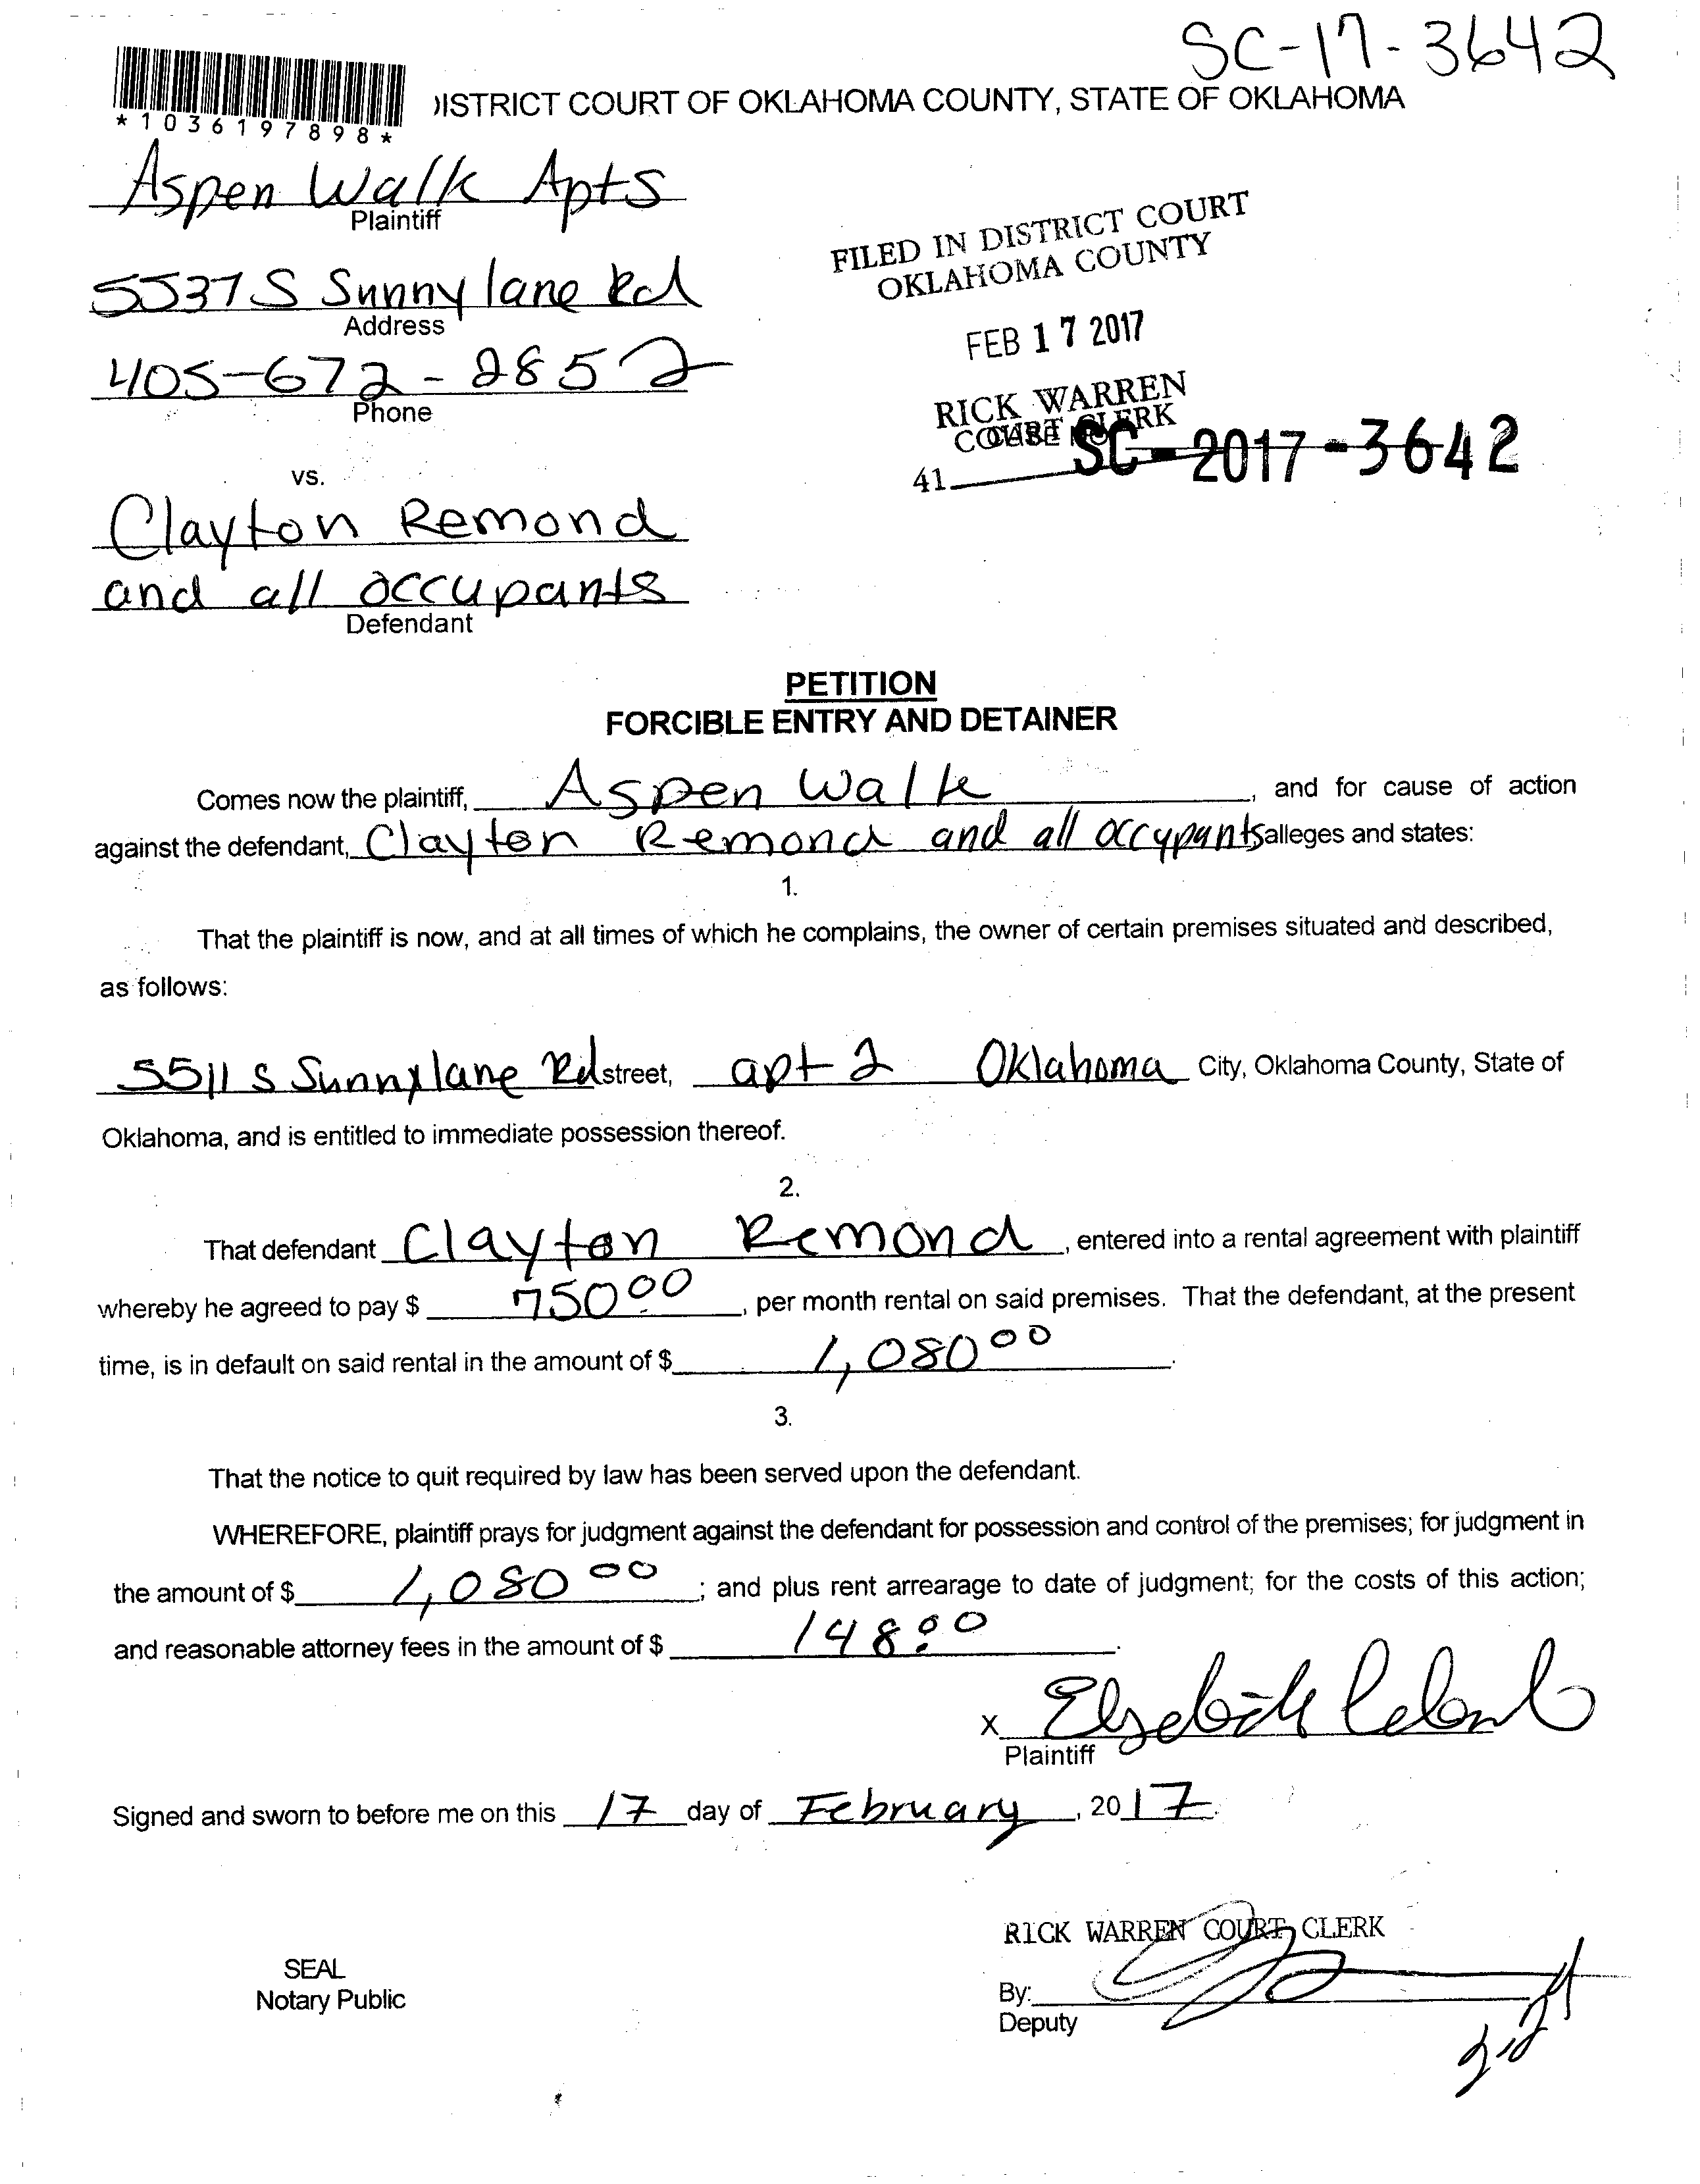 SC-17-3642
*1036197898*
DISTRICT COURT OF OKLAHOMA COUNTY, STATE OF OKLAHOMA
Aspen Walk Apts
Plaintiff
5537 S Sunnylane Rd
Address
405-672-2852
Phone
vs.
Clayton Remond
and all occupants
Defendant
FILED IN DISTRICT COURT
OKLAHOMA COUNTY
FEB 17 2017
RICK WARREN
COURT CLERK
41 SC-2017-3642
PETITION
FORCIBLE ENTRY AND DETAINER
Comes now the plaintiff, Aspen Walk, and for cause of action
against the defendant, Clayton Remond and all occypants alleges and states:
1.
That the plaintiff is now, and at all times of which he complains, the owner of certain premises situated and described,
as follows:
5511 S Sunnylane Rd street, apt 2 Oklahoma City, Oklahoma County, State of
Oklahoma, and is entitled to immediate possession thereof.
2.
That defendant Clayton Remond, entered into a rental agreement with plaintiff
whereby he agreed to pay $ 750.00, per month rental on said premises. That the defendant, at the present
time, is in default on said rental in the amount of $ 1,080 00.
3.
That the notice to quit required by law has been served upon the defendant.
WHEREFORE, plaintiff prays for judgment against the defendant for possession and control of the premises; for judgment in
the amount of $ 1,080 00; and plus rent arrearage to date of judgment; for the costs of this action;
and reasonable attorney fees in the amount of $ 148.00.
x
Plaintiff
Signed and sworn to before me on this 17 day of February, 2017.
RICK WARREN COURT CLERK
SEAL
Notary Public
By:
Deputy